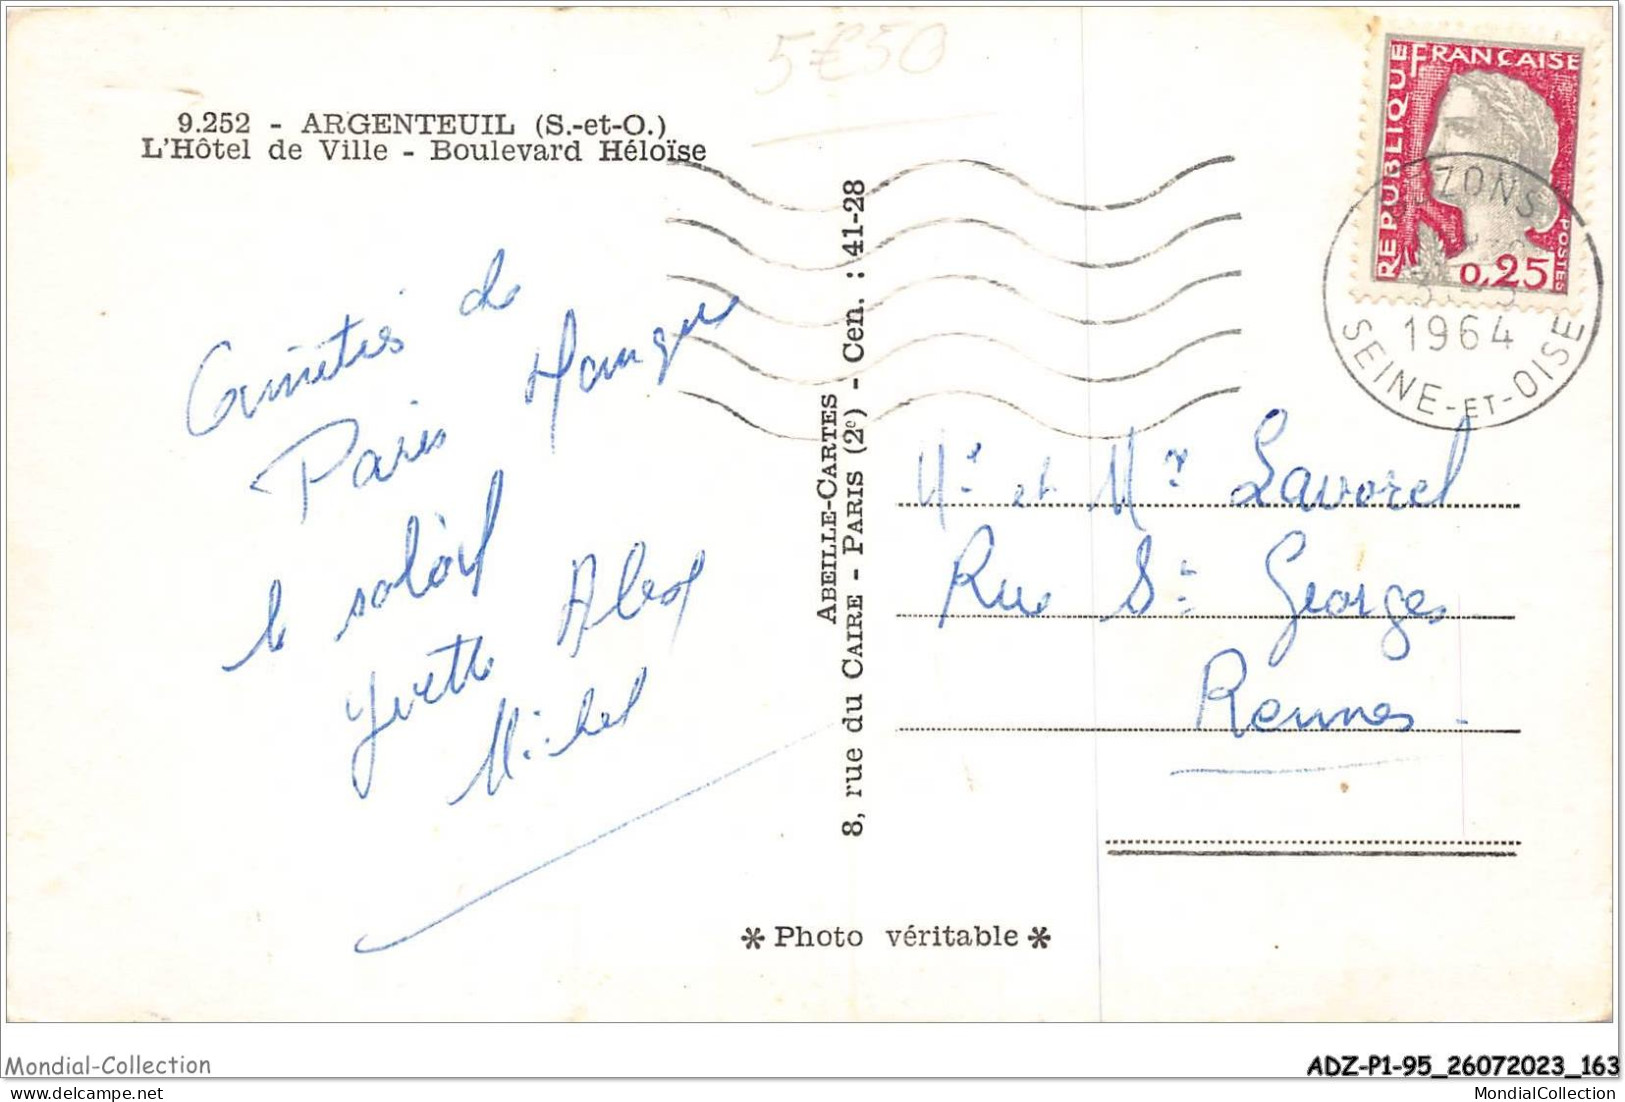 5€50
9.252 - ARGENTEUIL (S.-et-O.)
L'Hôtel de Ville - Boulevard Héloïse
REPUBLIQUE FRANÇAISE
POSTES
0,25
1964
SEINE-ET-OISE
Amitiés de
Paris Manque
le soleil
Yvette Alex
Michel
ABEILLE-CARTES
8, rue du CAIRE - PARIS (2e) - Cen. : 41-28
Me et Mr Lavorel
Rue St Georges
Rennes -
* Photo véritable *
Mondial-Collection
ADZ-P1-95_26072023_163
MondialCollection